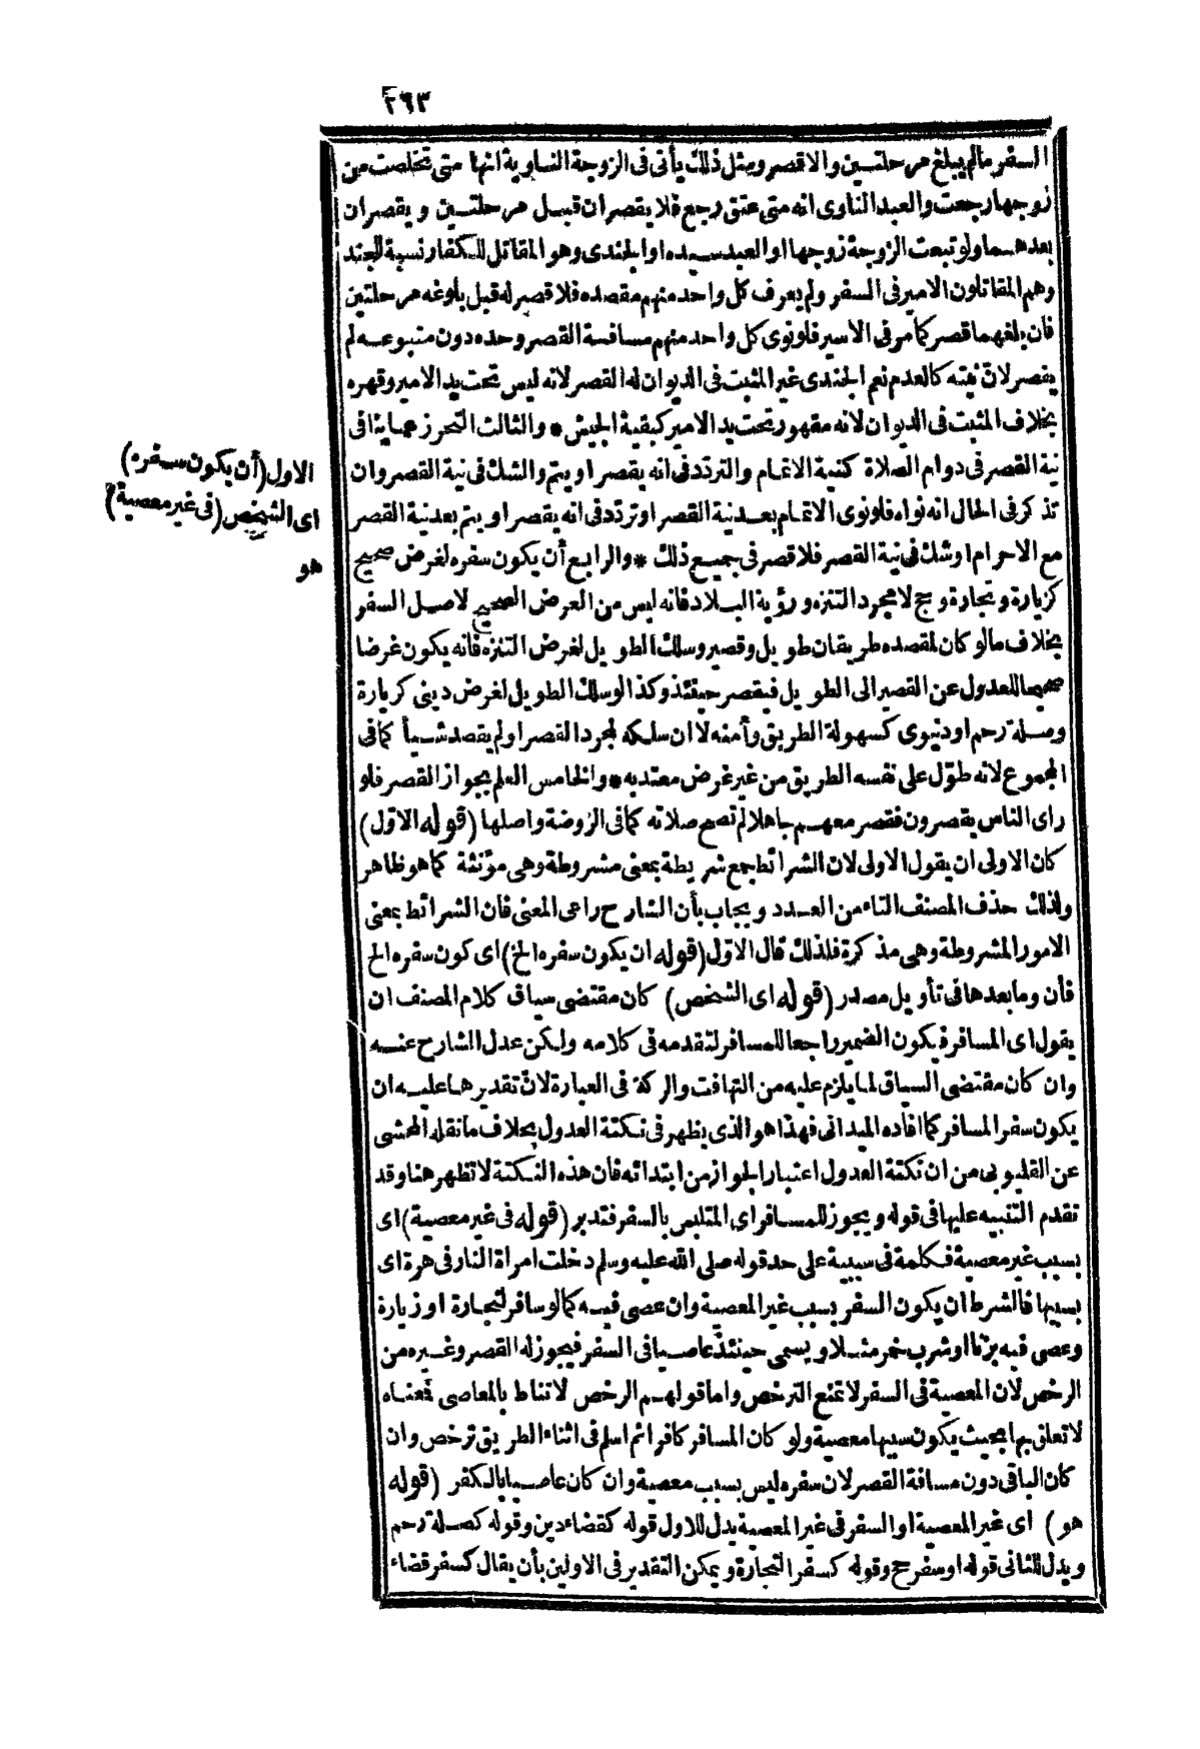 ٢٦٣
السفر مالم يبلغ مرحلتين والاقصر ومثل ذلك يأتى فى الزوجة الناوية انها متى تخلصت من
زوجها رجعت والعبد الناوى انه متى عتق رجع فلا يقصران قبل مرحلتين ويقصران
بعدهما ولو تبعت الزوجة زوجها او العبد سيده او الجندى وهو المقاتل للكفار نسبة للجند
وهم المقاتلون الامير فى السفر ولم يعرف كل واحد منهم مقصده فلا قصر له قبل بلوغه مرحلتين
فان بلغهما قصر كما مر فى الاسير فلو نوى كل واحد منهم مسافة القصر وحده دون متبوعه لم
يقصر لان نيته كالعدم نعم الجندى غير المثبت فى الديوان له القصر لانه ليس تحت يد الامير وقهره
بخلاف المثبت فى الديوان لانه مقهور تحت يد الامير كبقية الجيش * والثالث التحرز عما ينافى
نية القصر فى دوام الصلاة كنية الاتمام والتردد فى انه يقصر او يتم والشك فى نية القصر وان
تذكر فى الحال انه نواه فلو نوى الاتمام بعد نية القصر او تردد فى انه يقصر او يتم بعد نية القصر
مع الاحرام او شك فى نية القصر فلا قصر فى جميع ذلك * والرابع أن يكون سفره لغرض صحيح
كزيارة وتجارة وحج لا مجرد التنزه ورؤية البلاد فانه ليس من الغرض الصحيح لاصل السفر
بخلاف مالو كان لمقصده طريقان طويل وقصير وسلك الطويل لغرض التنزه فانه يكون غرضا
صحيحا للعدول عن القصير الى الطويل فيقصر حينئذ وكذا لو سلك الطويل لغرض دينى كزيارة
وصلة رحم او دنيوى كسهولة الطريق وأمنه لا ان سلكه لمجرد القصر او لم يقصد شيأ كما فى
المجموع لانه طوّل على نفسه الطريق من غير غرض معتد به * والخامس العلم بجواز القصر فلو
راى الناس يقصرون فقصر معهم جاهلا لم تصح صلاته كما فى الروضة واصلها (قوله الاوّل)
كان الاولى ان يقول الاولى لان الشرائط جمع شريطة بمعنى مشروطة وهى مؤنثة كما هو ظاهر
ولذلك حذف المصنف التاء من العدد ويجاب بأن الشارح راعى المعنى فان الشرائط بمعنى
الامور المشروطة وهى مذكرة فلذلك قال الاوّل (قوله ان يكون سفره الخ) اى كون سفره الخ
فأن وما بعدها فى تأويل مصدر (قوله اى الشخص) كان مقتضى سياق كلام المصنف ان
يقول اى المسافر فيكون الضمير راجعا للمسافر لتقدمه فى كلامه ولكن عدل الشارح عنه
وان كان مقتضى السياق لما يلزم عليه من التهافت والركة فى العبارة لان تقديرها عليه ان
يكون سفر المسافر كما افاده الميدانى فهذا هو الذى يظهر فى نكتة العدول بخلاف ما نقله المحشى
عن القليوبى من ان نكتة العدول اعتبار الجواز من ابتدائه فان هذه النكتة لا تظهر هنا وقد
تقدم التنبيه عليها فى قوله ويجوز للمسافر اى المتلبس بالسفر فتدبر (قوله فى غير معصية) اى
بسبب غير معصية فكلمة فى سببية على حد قوله صلى الله عليه وسلم دخلت امراة النار فى هرة اى
بسببها فالشرط ان يكون السفر بسبب غير المعصية وان عصى فيه كما لو سافر لتجارة او زيارة
وعصى فيه بزنا او شرب خمر مثلا ويسمى حينئذ عاصيا فى السفر فيجوز له القصر وغيره من
الرخص لان المعصية فى السفر لا تمنع الترخص واما قولهم الرخص لا تناط بالمعاصى فمعناه
لا تعلق بها بحيث يكون سببها معصية ولو كان المسافر كافرا ثم اسلم فى اثناء الطريق ترخص وان
كان الباقى دون مسافة القصر لان سفره ليس بسبب معصية وان كان عاصيا بالكفر (قوله
هو) اى غير المعصية او السفر فى غير المعصية يدل للاول قوله كقضاء دين وقوله كصلة رحم
ويدل للثانى قوله او سفر حج وقوله كسفر التجارة ويمكن التقدير فى الاولين بأن يقال كسفر قضاء
الاول (أن يكون سفره)
اى الشخص (فى غير معصية)
هو